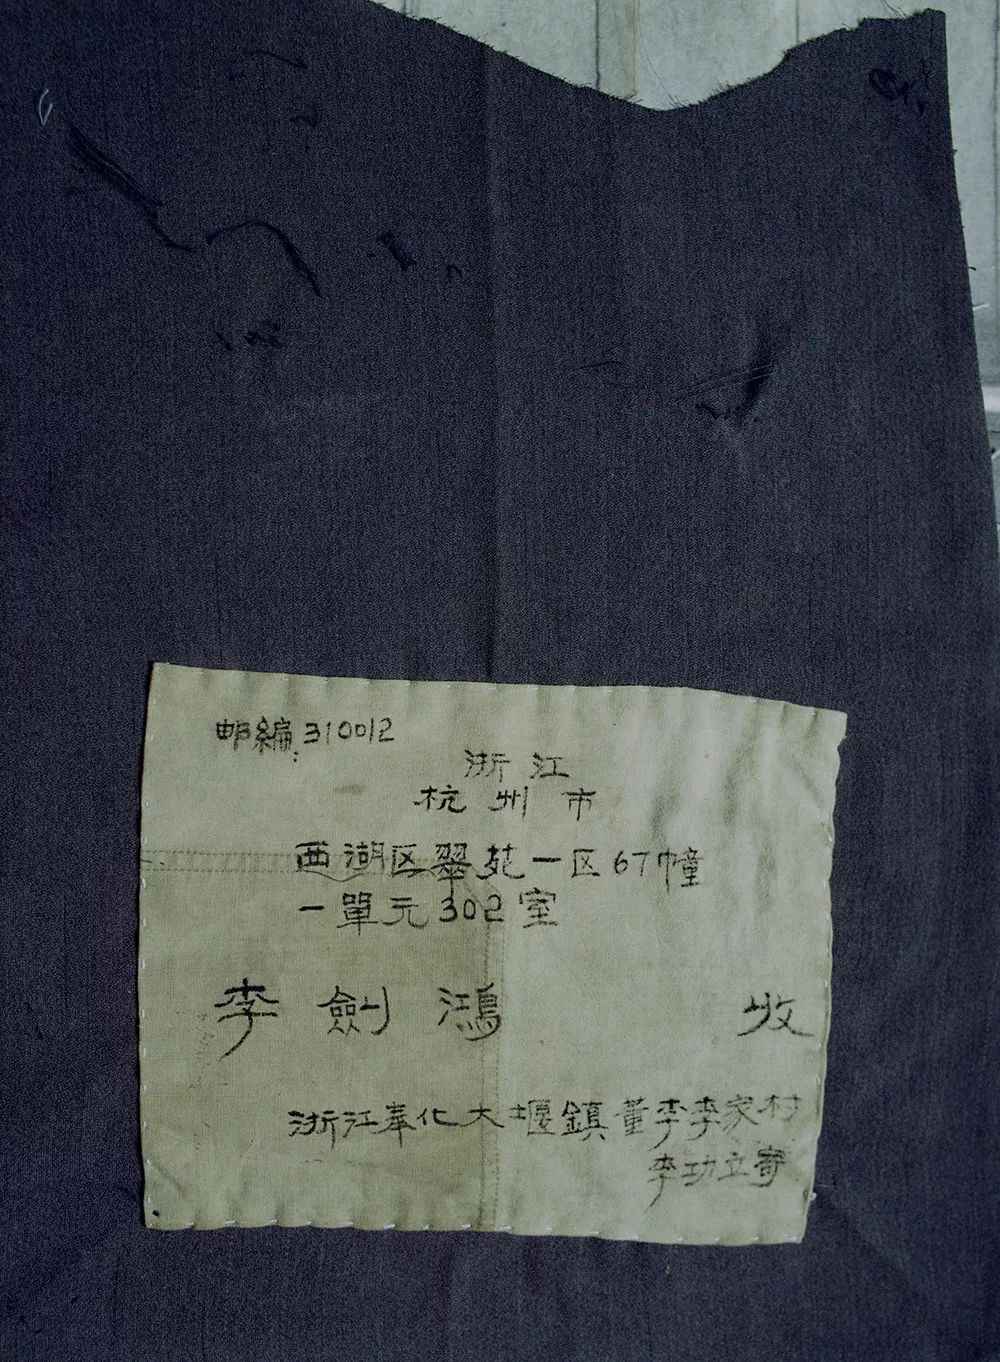 邮編:310012
浙江
杭州市
西湖区翠苑一区67幢
一單元302室
李劍鴻 收
浙江奉化大堰鎮董李李家村
李功立寄